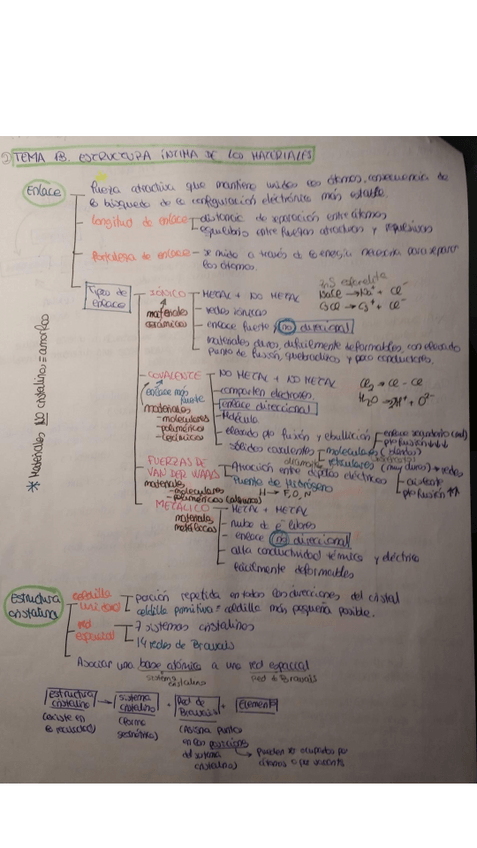 TEMA 13. ESTRUCTURA ÍNTIMA DE LOS MATERIALES
Enlace
fuerza atractiva que mantiene unidos los átomos, consecuencia de
la búsqueda de la configuración electrónica más estable.
longitud de enlace
distancia de separación entre átomos
equilibrio entre fuerzas atractivas y repulsivas
fortaleza de enlace
se mide a través de la energía necesaria para separar
los átomos.
Tipos de enlace
IÓNICO
materiales cerámicos
METAL + NO METAL
redes iónicas
enlace fuerte, no direccional
materiales duros, difícilmente deformables, con elevado
punto de fusión, quebradizos y poco conductores.
NaCl → Na⁺ + Cl⁻
CsCl → Cs⁺ + Cl⁻
COVALENTE
enlace más fuerte
materiales
-moleculares
-poliméricos
-cerámicos
NO METAL + NO METAL
comparten electrones.
enlace direccional
Molécula
elevado pto fusión y ebullición
sólidos covalentes
moleculares (blandos)
reticulares (muy duros)
redes
pto fusión ↑↑
Cl₂ → Cl - Cl
H₂O → 2H⁺ + O²⁻
FUERZAS DE
VAN DER WAALS
materiales
-moleculares
-poliméricos (algunos)
Atracción entre dipolos eléctricos
Puente de Hidrógeno
H → F, O, N
METÁLICO
materiales metálicos
METAL + METAL
nube de e⁻ libres
enlace no direccional
alta conductividad térmica y eléctrica
fácilmente deformables
* Materiales NO cristalinos = amorfos
Estructura cristalina
celdilla unidad
porción repetida en todas las direcciones del cristal
celdilla primitiva = celdilla más pequeña posible.
red espacial
7 sistemas cristalinos
14 redes de Bravais
Asociar una base atómica a una red espacial
sistema cristalino
Red de Bravais
estructura cristalina → sistema cristalino + Red de Bravais + Elemento
(existe en la realidad)
(forma geométrica)
(Asigna puntos
en las posiciones
del sistema
cristalino)
→ pueden ser ocupados por
átomos o por vacante